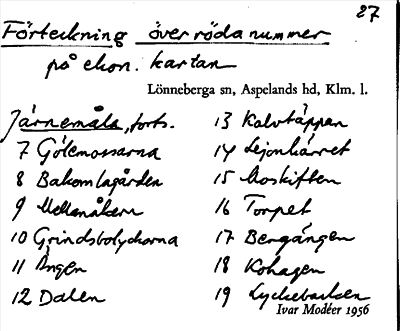 27
Förteckning över röda nummer
på ekon. kartan
Lönneberga sn, Aspelands hd, Klm. l.
Järnemåla, forts.
7 Gölemossarna
8 Bakomlagården
9 Mellanåkern
10 Grindsbolyckorna
11 Ängen
12 Dalen
13 Kalvtäppan
14 Lejonkärret
15 Moskiften
16 Torpet
17 Bergängen
18 Kohagen
19 Lyckebacken
Ivar Modéer 1956